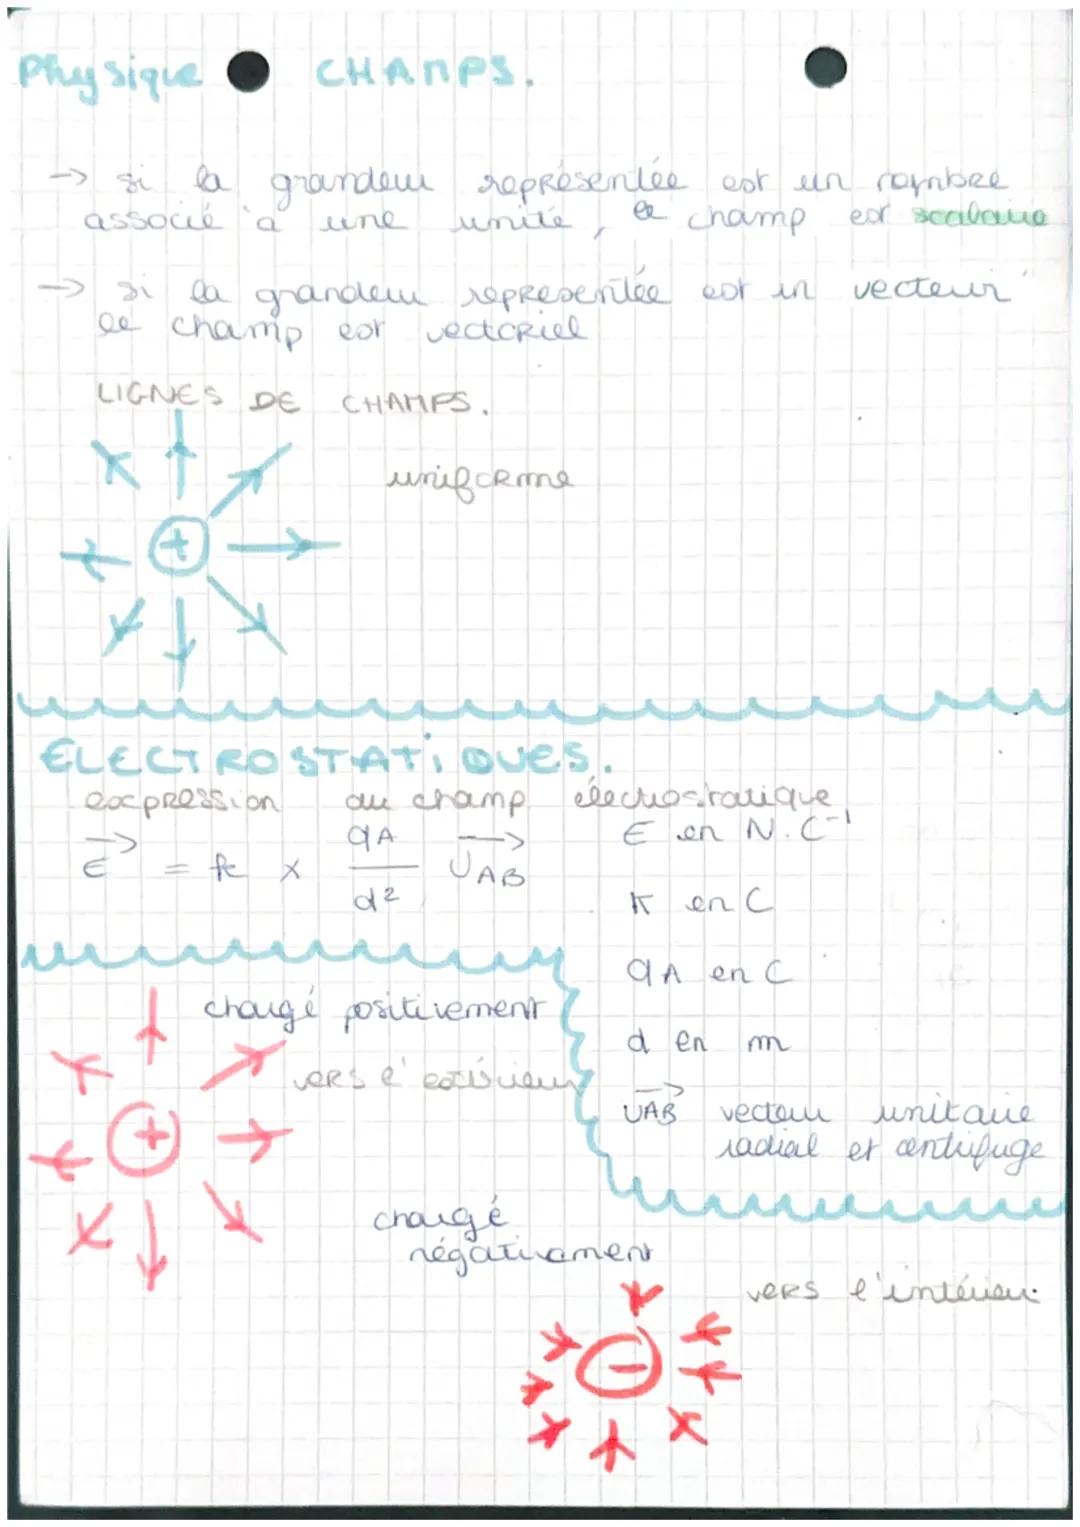 Physique CHAMPS.
→ si la grandeur représentée est un nombre
associé à une unité, le champ est scalaire
→ si la grandeur représentée est un vecteur
le champ est vectoriel
LIGNES DE CHAMPS.
uniforme
+
ELECTROSTATiQUES.
expression du champ électrostatique
E en N.C⁻¹
E⃗ = k × qA/d² U⃗AB
K en C
qA en C
d en m
U⃗AB vecteur unitaire
radial et centrifuge
chargé positivement
vers l'extérieur
+
chargé
négativement
vers l'intérieur
−